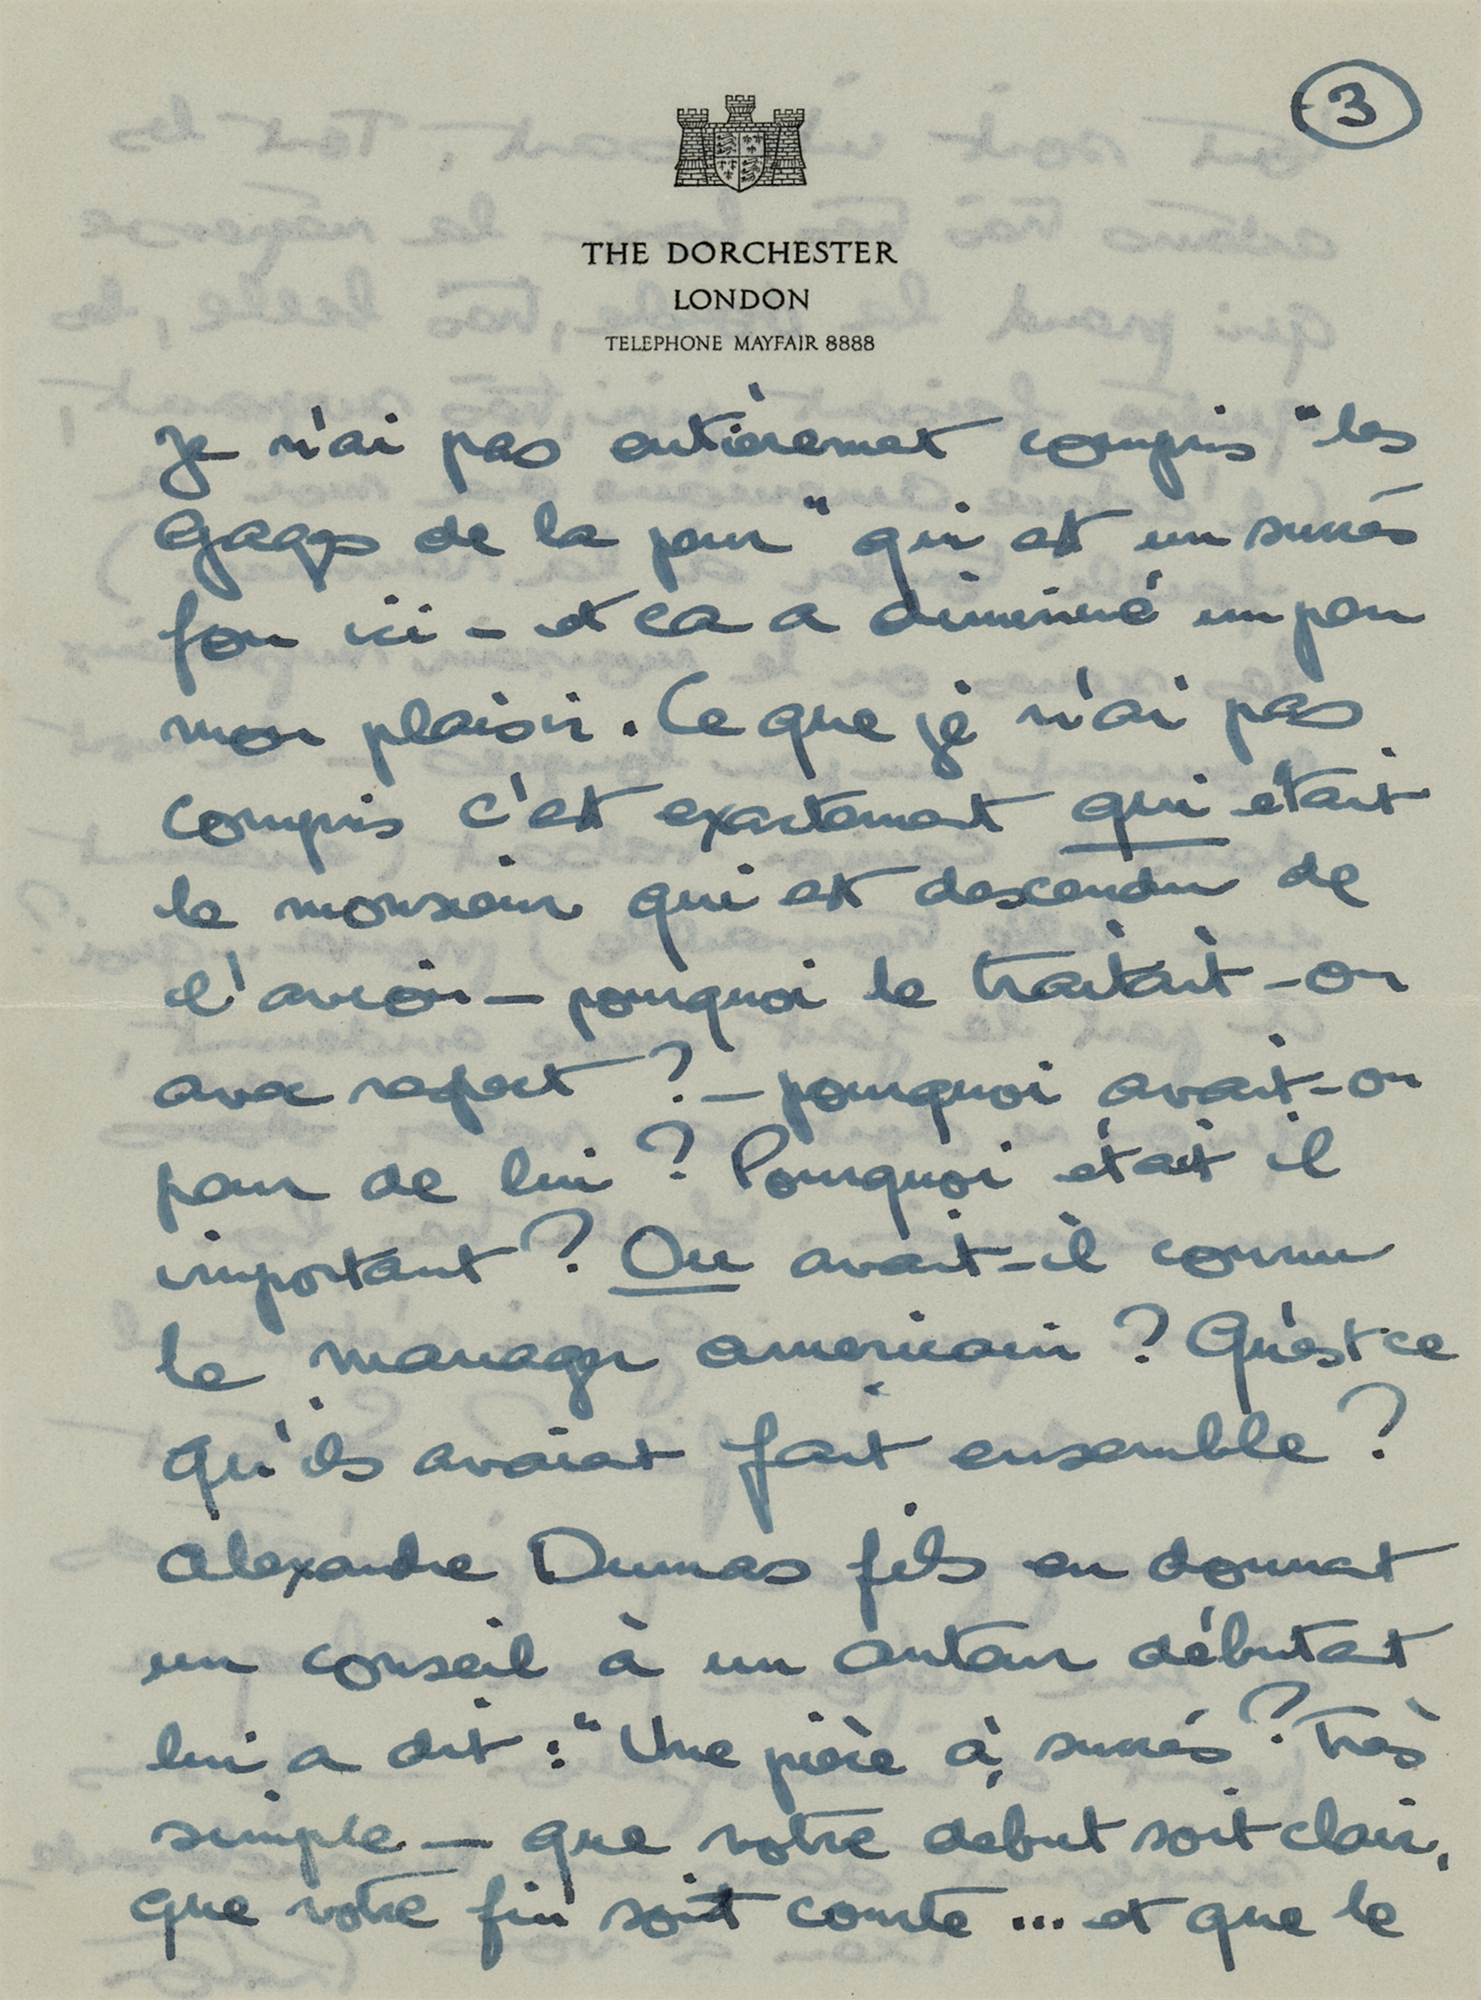 3
THE DORCHESTER
LONDON
TELEPHONE MAYFAIR 8888
Je n'ai pas entièrement compris "les
Gages de la peur" qui est un succès
fou ici - et ca a diminué un peu
mon plaisir. Ce que je n'ai pas
compris c'est exactement qui était
le monsieur qui est descendu de
l'avion - pourquoi le traitait-on
avec respect ? - pourquoi avait-on
peur de lui ? Pourquoi était il
important ? Ou avait-il connu
le manager americain ? Qu'est ce
qu'ils avaient fait ensemble ?
Alexandre Dumas fils en donnant
un conseil à un auteur débutant
lui a dit : "Une pièce à succés ? Très
simple - que votre début soit clair,
que votre fin soit courte ... et que le